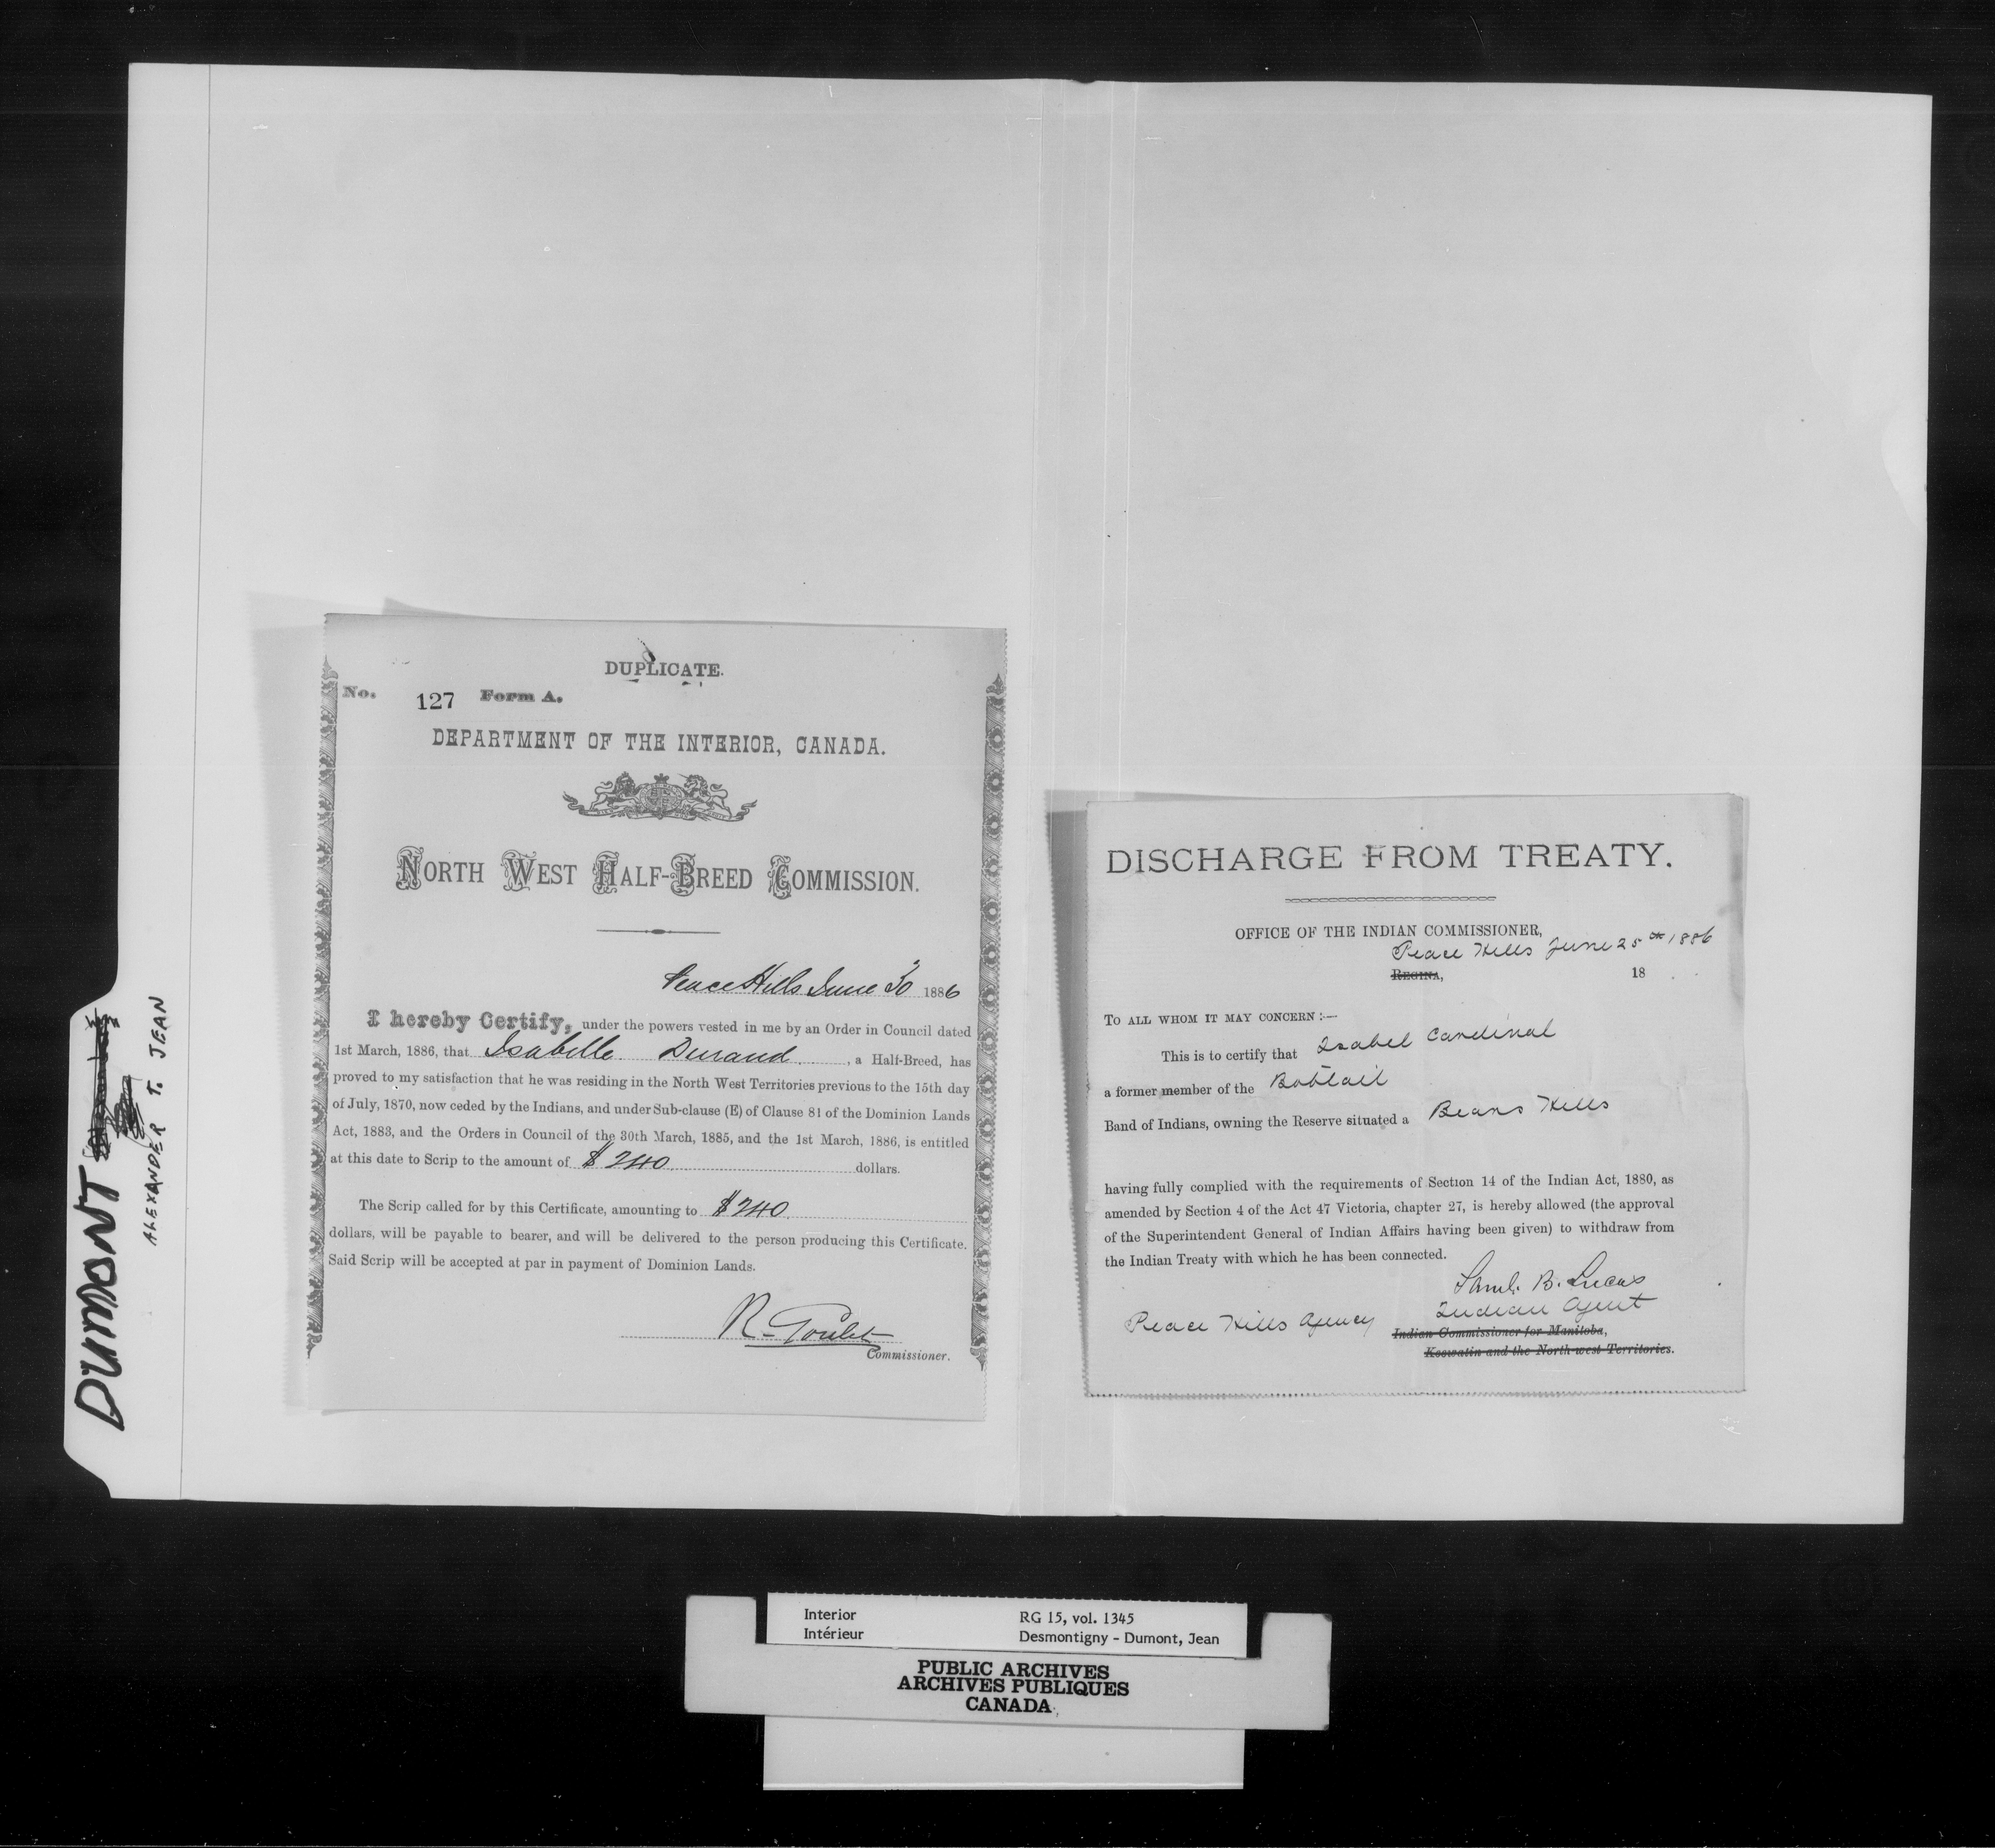 DUMONT
ALEXANDER T. JEAN
DUPLICATE.
No. 127 Form A.
DEPARTMENT OF THE INTERIOR, CANADA.
NORTH WEST HALF-BREED COMMISSION.
Peace Hills June 30 1886
I hereby Certify, under the powers vested in me by an Order in Council dated
1st March, 1886, that Isabelle Durand, a Half-Breed, has
proved to my satisfaction that he was residing in the North West Territories previous to the 15th day
of July, 1870, now ceded by the Indians, and under Sub-clause (E) of Clause 81 of the Dominion Lands
Act, 1883, and the Orders in Council of the 30th March, 1885, and the 1st March, 1886, is entitled
at this date to Scrip to the amount of $240 dollars.
The Scrip called for by this Certificate, amounting to $240
dollars, will be payable to bearer, and will be delivered to the person producing this Certificate.
Said Scrip will be accepted at par in payment of Dominion Lands.
R. Goulet
Commissioner.
DISCHARGE FROM TREATY.
OFFICE OF THE INDIAN COMMISSIONER,
Peace Hills June 25th 1886
REGINA, 18
TO ALL WHOM IT MAY CONCERN:—
This is to certify that Isabel Cardinal
a former member of the Bobtail
Band of Indians, owning the Reserve situated a Bears Hills
having fully complied with the requirements of Section 14 of the Indian Act, 1880, as
amended by Section 4 of the Act 47 Victoria, chapter 27, is hereby allowed (the approval
of the Superintendent General of Indian Affairs having been given) to withdraw from
the Indian Treaty with which he has been connected.
Saml. B. Lucas
Indian Agent
Peace Hills Agency
Indian Commissioner for Manitoba,
Keewatin and the North-west Territories.
Interior RG 15, vol. 1345
Intérieur Desmontigny - Dumont, Jean
PUBLIC ARCHIVES
ARCHIVES PUBLIQUES
CANADA